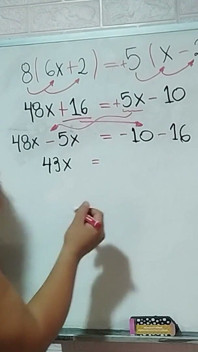 8(6x+2) = +5(x-2
48x+16 = +5x-10
48x-5x = -10-16
43x =